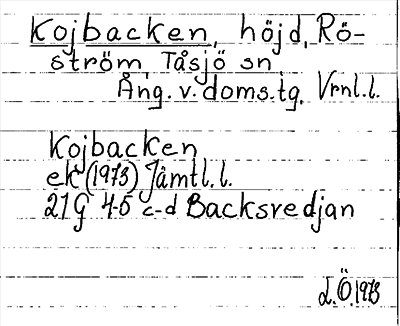 Kojbacken, höjd, Rö-
ström, Tåsjö sn,
Ång. v. doms.tg. Vrnl.l.
Kojbacken
ek (1973) Jämtl.l.
21G 4-5 c-d Backsvedjan
L.Ö.1973